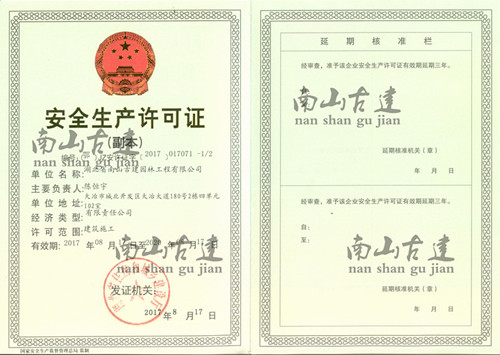 安全生产许可证
(副本)
南山古建
nan shan gu jian
编号:
安许证字〔2017〕017071 -1/2
单位名称:
南山古建园林工程有限公司
主要负责人:
陈恒宇
单位地址:
大冶市城北开发区大冶大道180号2栋四单元
102室
经济类型:
有限责任公司
许可范围:
建筑施工
有效期: 2017 年08 月
南山古建
nan shan gu jian
发证机关:
2017年8 月17日
国家安全生产监督管理总局 监制
延期核准栏
经审查,准予该企业安全生产许可证有效期延期三年。
南山古建
nan shan gu jian
延期核准机关(章)
年 月 日
经审查,准予该企业安全生产许可证有效期延期三年。
自:
至:
南山古建
nan shan gu jian
延期核准机关(章)
年 月 日